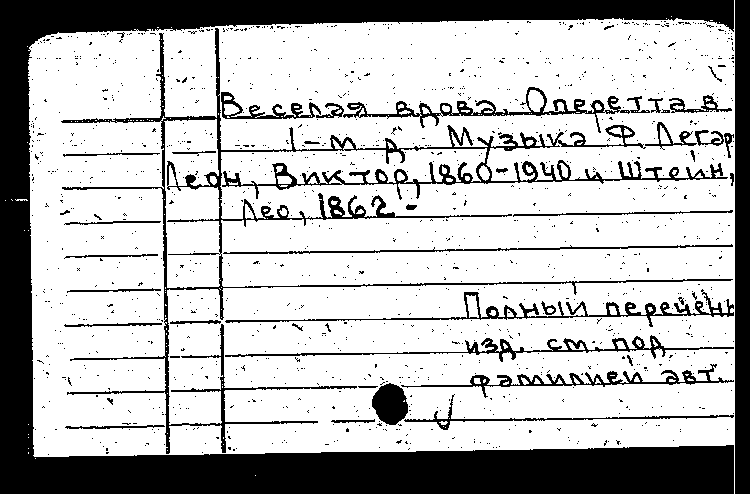 Веселая вдова. Оперетта в
1-м д. Музыка Ф. Легар
Леон, Виктор, 1860-1940 и Штейн,
Лео, 1862 -
Полный перечень
изд. см. под
фамилией авт.